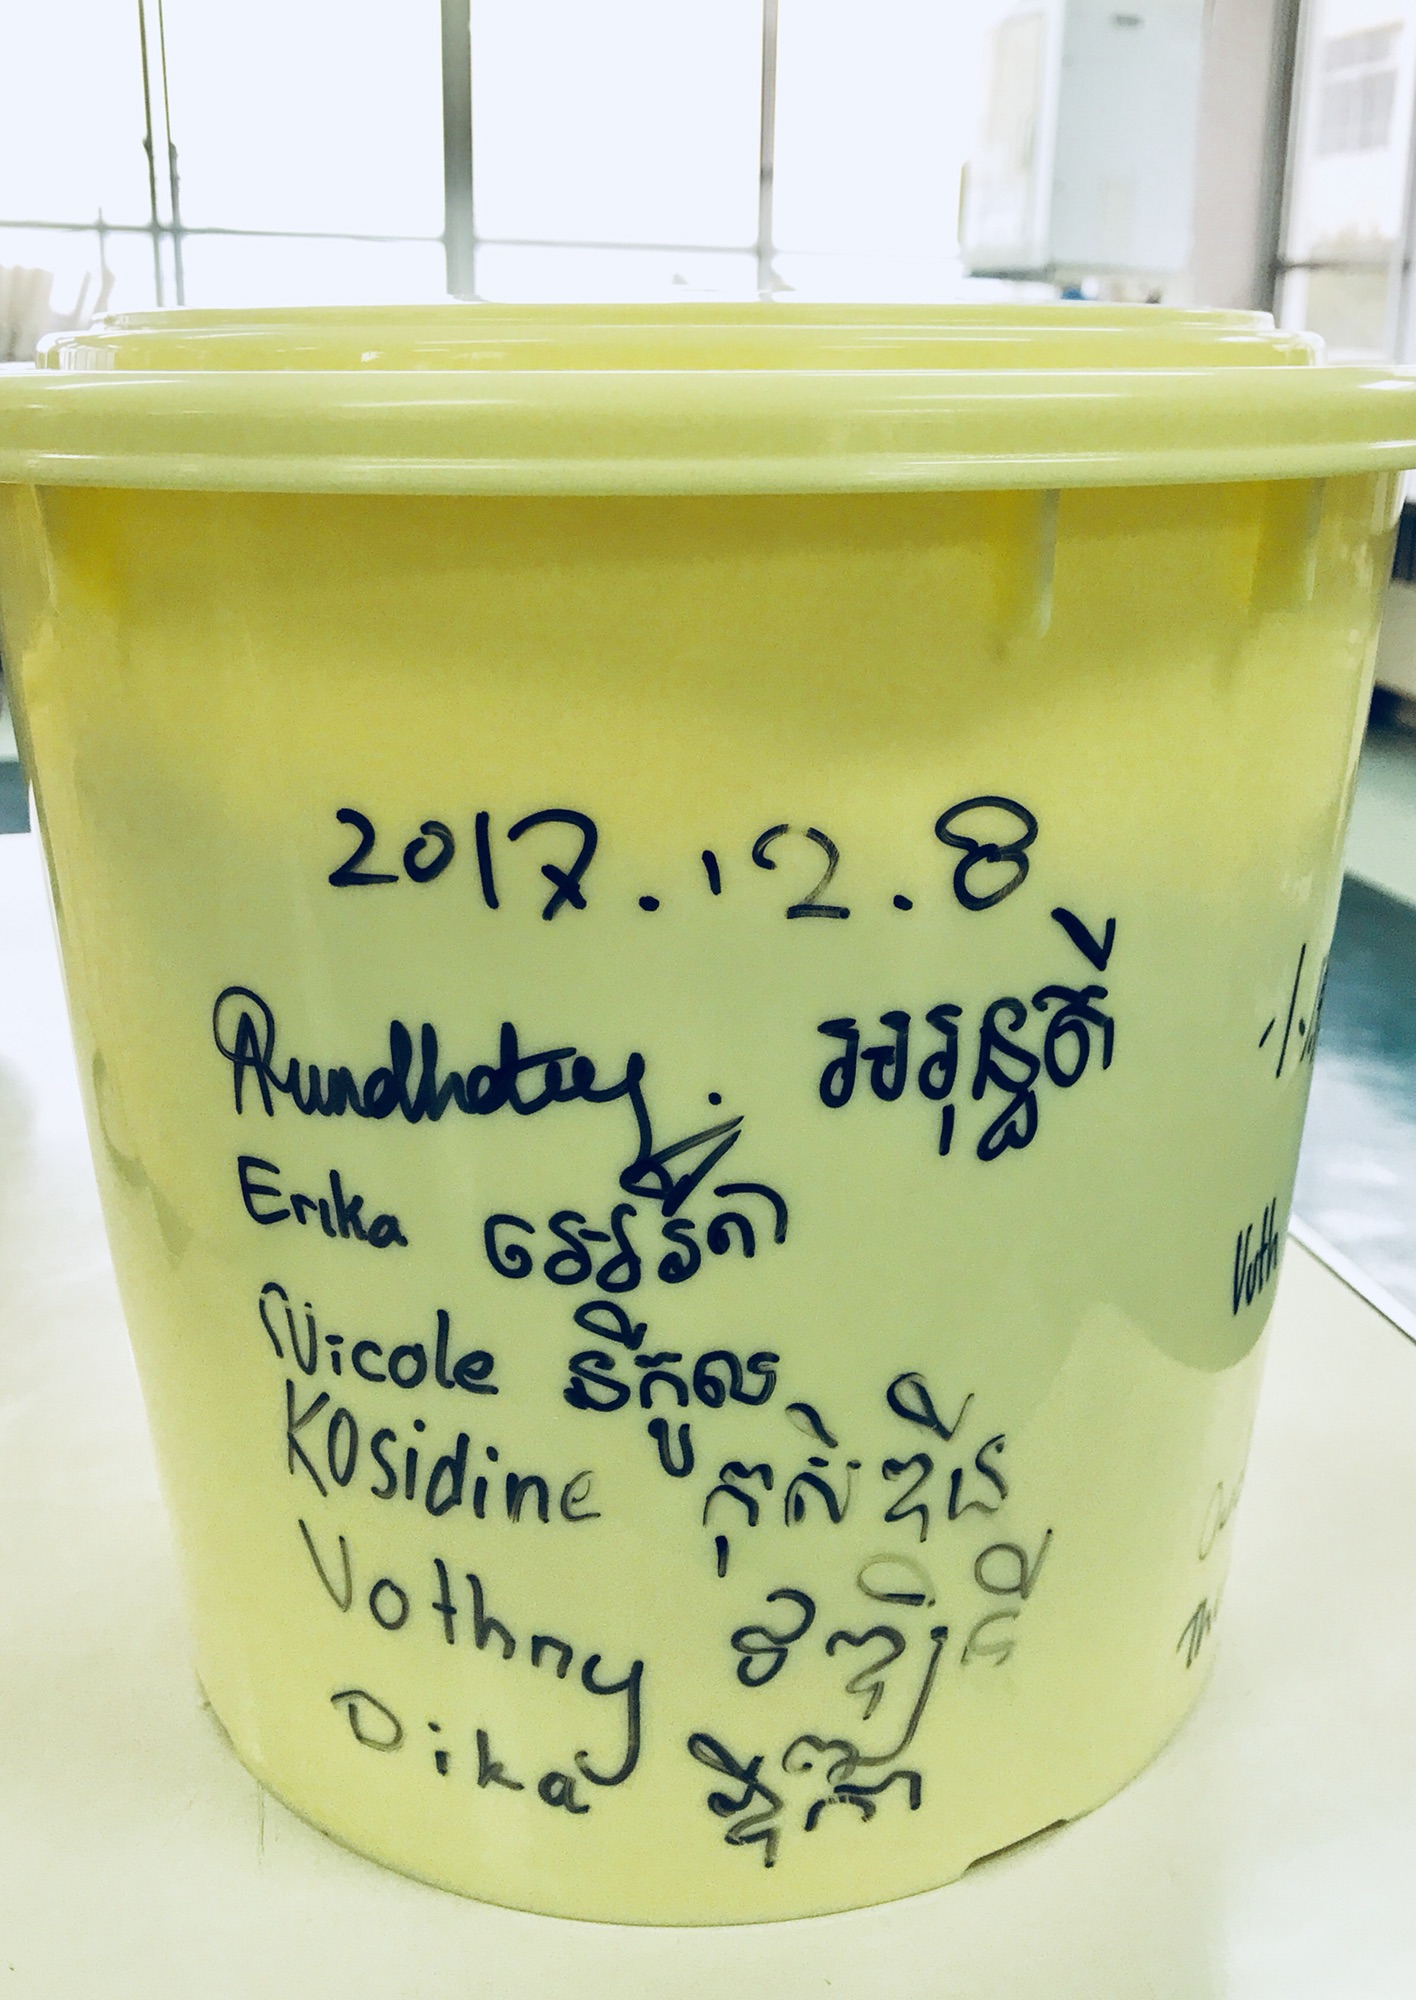 2017.12.8
Arundhatey. អរុន្ធតី
Erika អេរីកា
Nicole នីកូល
Kosidine កុស៊ីឌីន
Vothny
Dika ឌីកា
Voth